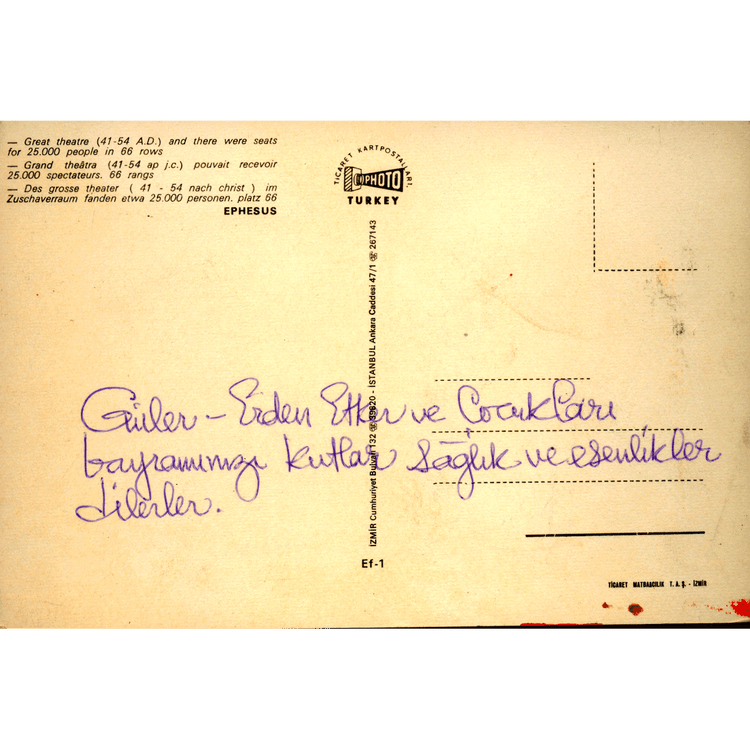 — Great theatre (41-54 A.D.) and there were seats
for 25.000 people in 66 rows
— Grand theâtra (41-54 ap j.c.) pouvait recevoir
25.000 spectateurs. 66 rangs
— Des grosse theater ( 41 - 54 nach christ ) im
Zuschaverraum fanden etwa 25.000 personen. platz 66
EPHESUS
TİCARET KARTPOSTALLARI,
PHOTO
TURKEY
İZMİR Cumhuriyet Bulvarı 132 ☏ 39620 - İSTANBUL Ankara Caddesi 47/1 ☏ 267143
Güler - Erden Etker ve Çocukları
bayramınızı kutlar sağlık ve esenlikler
dilerler.
Ef-1
TİCARET MATBAACILIK T. A. Ş. - İZMİR